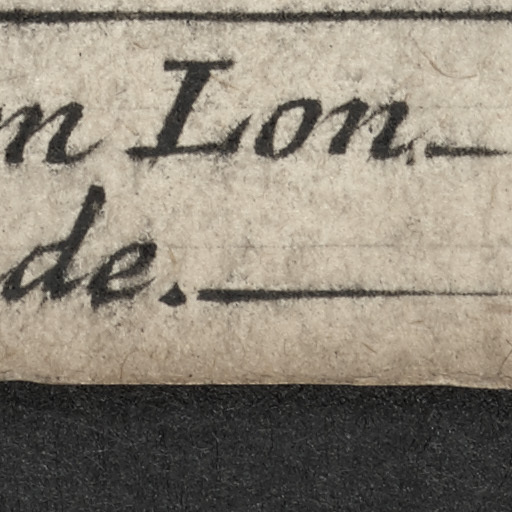 m Lon.
de.